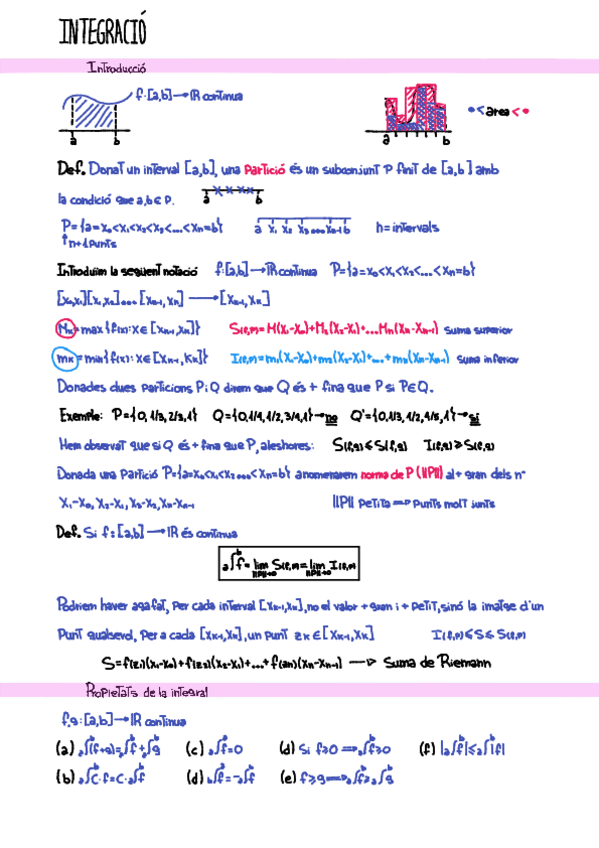 INTEGRACIÓ
Introducció
f:[a,b]→IR contínua
•< àrea <•
a b a b
Def. Donat un interval [a,b], una partició és un subconjunt P finit de [a,b] amb
la condició que a,b∈P. a b
P={a=x₀<x₁<x₂<x₃<...<xₙ=b} a x₁ x₂ x₃...xₙ₋₁ b n=intervals
↑n+1 punts
Introduïm la següent notació f:[a,b]→IR contínua P={a=x₀<x₁<x₂<...<xₙ=b}
[x₀,x₁][x₁,x₂]...[xₙ₋₁,xₙ] → [xₖ₋₁,xₖ]
Mₖ=max{f(x):x∈[xₖ₋₁,xₖ]} S(f,P)=M₁(x₁-x₀)+M₂(x₂-x₁)+...Mₙ(xₙ-xₙ₋₁) suma superior
mₖ=min{f(x):x∈[xₖ₋₁,xₖ]} I(f,P)=m₁(x₁-x₀)+m₂(x₂-x₁)+...+mₙ(xₙ-xₙ₋₁) suma inferior
Donades dues particions P i Q direm que Q és + fina que P si P∈Q.
Exemple: P={0,1/3,2/3,1} Q={0,1/4,1/2,3/4,1}→no Q'={0,1/3,1/2,4/5,1}→sí
Hem observat que si Q és + fina que P, aleshores: S(f,Q)≤S(f,P) I(f,P)≥S(f,Q)
Donada una partició P={a=x₀<x₁<x₂...<xₙ=b} anomenarem norma de P (||P||) al + gran dels nº
x₁-x₀, x₂-x₁, x₃-x₂, xₙ-xₙ₋₁ ||P|| petita ⇒ punts molt junts
Def. Si f:[a,b]→IR és contínua
a∫ᵇf= lim S(f,P)= lim I(f,P)
||P||→0 ||P||→0
Podríem haver agafat, per cada interval [xₖ₋₁,xₖ], no el valor + gran i + petit, sinó la imatge d'un
punt qualsevol, per a cada [xₖ₋₁,xₖ], un punt zₖ∈[xₖ₋₁,xₖ] I(f,P)≤S≤S(f,P)
S=f(z₁)(x₁-x₀)+f(z₂)(x₂-x₁)+...+f(an)(xₙ-xₙ₋₁) → Suma de Riemann
Propietats de la integral
f,g:[a,b]→IR contínua
(a) a∫ᵇ(f+g)=a∫ᵇf+a∫ᵇg (c) a∫ᵃf=0 (d) Si f≥0 ⇒ a∫ᵇf≥0 (f) |a∫ᵇf|≤a∫ᵇ|f|
(b) a∫ᵇC·f=C·a∫ᵇf (d) b∫ᵃf=-a∫ᵇf (e) f≥g ⇒ a∫ᵇf≥a∫ᵇg